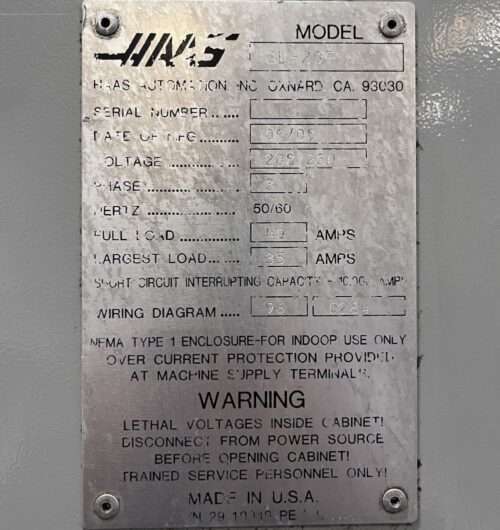 HAAS MODEL
HAAS AUTOMATION INC OXNARD CA. 93030
SERIAL NUMBER ......
DATE OF MFG ..........
VOLTAGE ...............
PHASE ...................
HERTZ ................... 50/60
FULL LOAD .......... AMPS
LARGEST LOAD..... 35 AMPS
SHORT CIRCUIT INTERRUPTING CAPACITY - 10,000 AMPS
WIRING DIAGRAM ..... 96
NEMA TYPE 1 ENCLOSURE-FOR INDOOR USE ONLY
OVER CURRENT PROTECTION PROVIDED
AT MACHINE SUPPLY TERMINALS.
WARNING
LETHAL VOLTAGES INSIDE CABINET!
DISCONNECT FROM POWER SOURCE
BEFORE OPENING CABINET!
TRAINED SERVICE PERSONNEL ONLY!
MADE IN U.S.A.